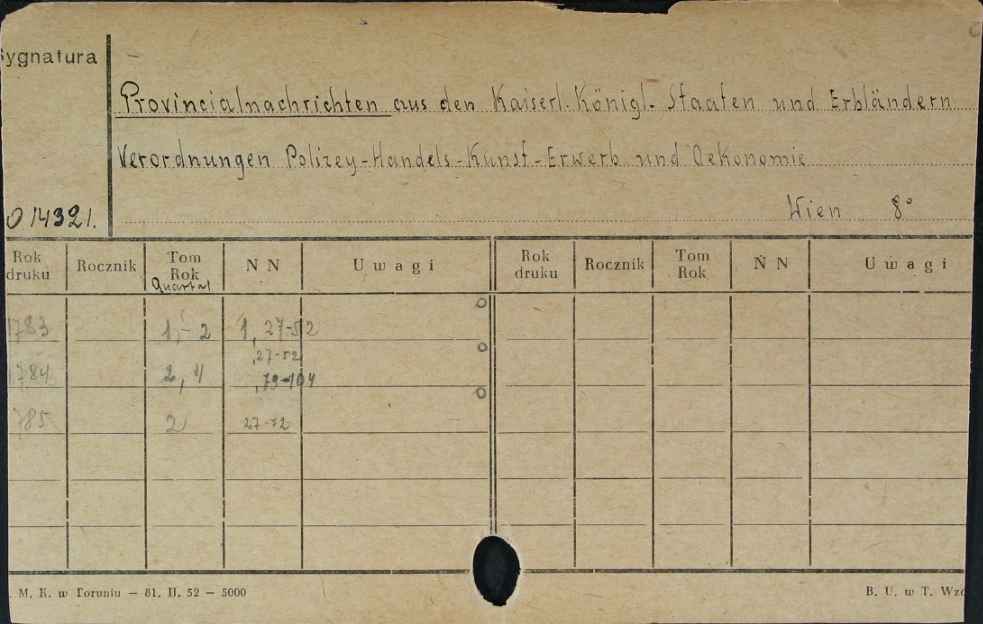 Sygnatura
Provincialnachrichten aus den Kaiserl. Königl. Staaten und Erbländern
Verordnungen Polizey-Handels-Kunst-Erwerb und Oekonomie
Wien 8°
O 14321.
Rok druku Rocznik Tom Rok Quartal N N Uwagi Rok druku Rocznik Tom Rok N N Uwagi
1783 1,-2 1, 27-52
27-52
1784 2, 4 ,79-104
785 2 27-52
M. K. w Toruniu — 81. II. 52 — 5000 B. U. w T. Wzó